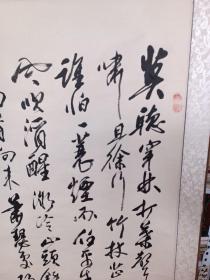 莫聽穿林打葉聲
嘯且徐行竹杖芒
誰怕一蓑煙雨任平生
風吹酒醒微冷山頭斜
回首向來蕭瑟處